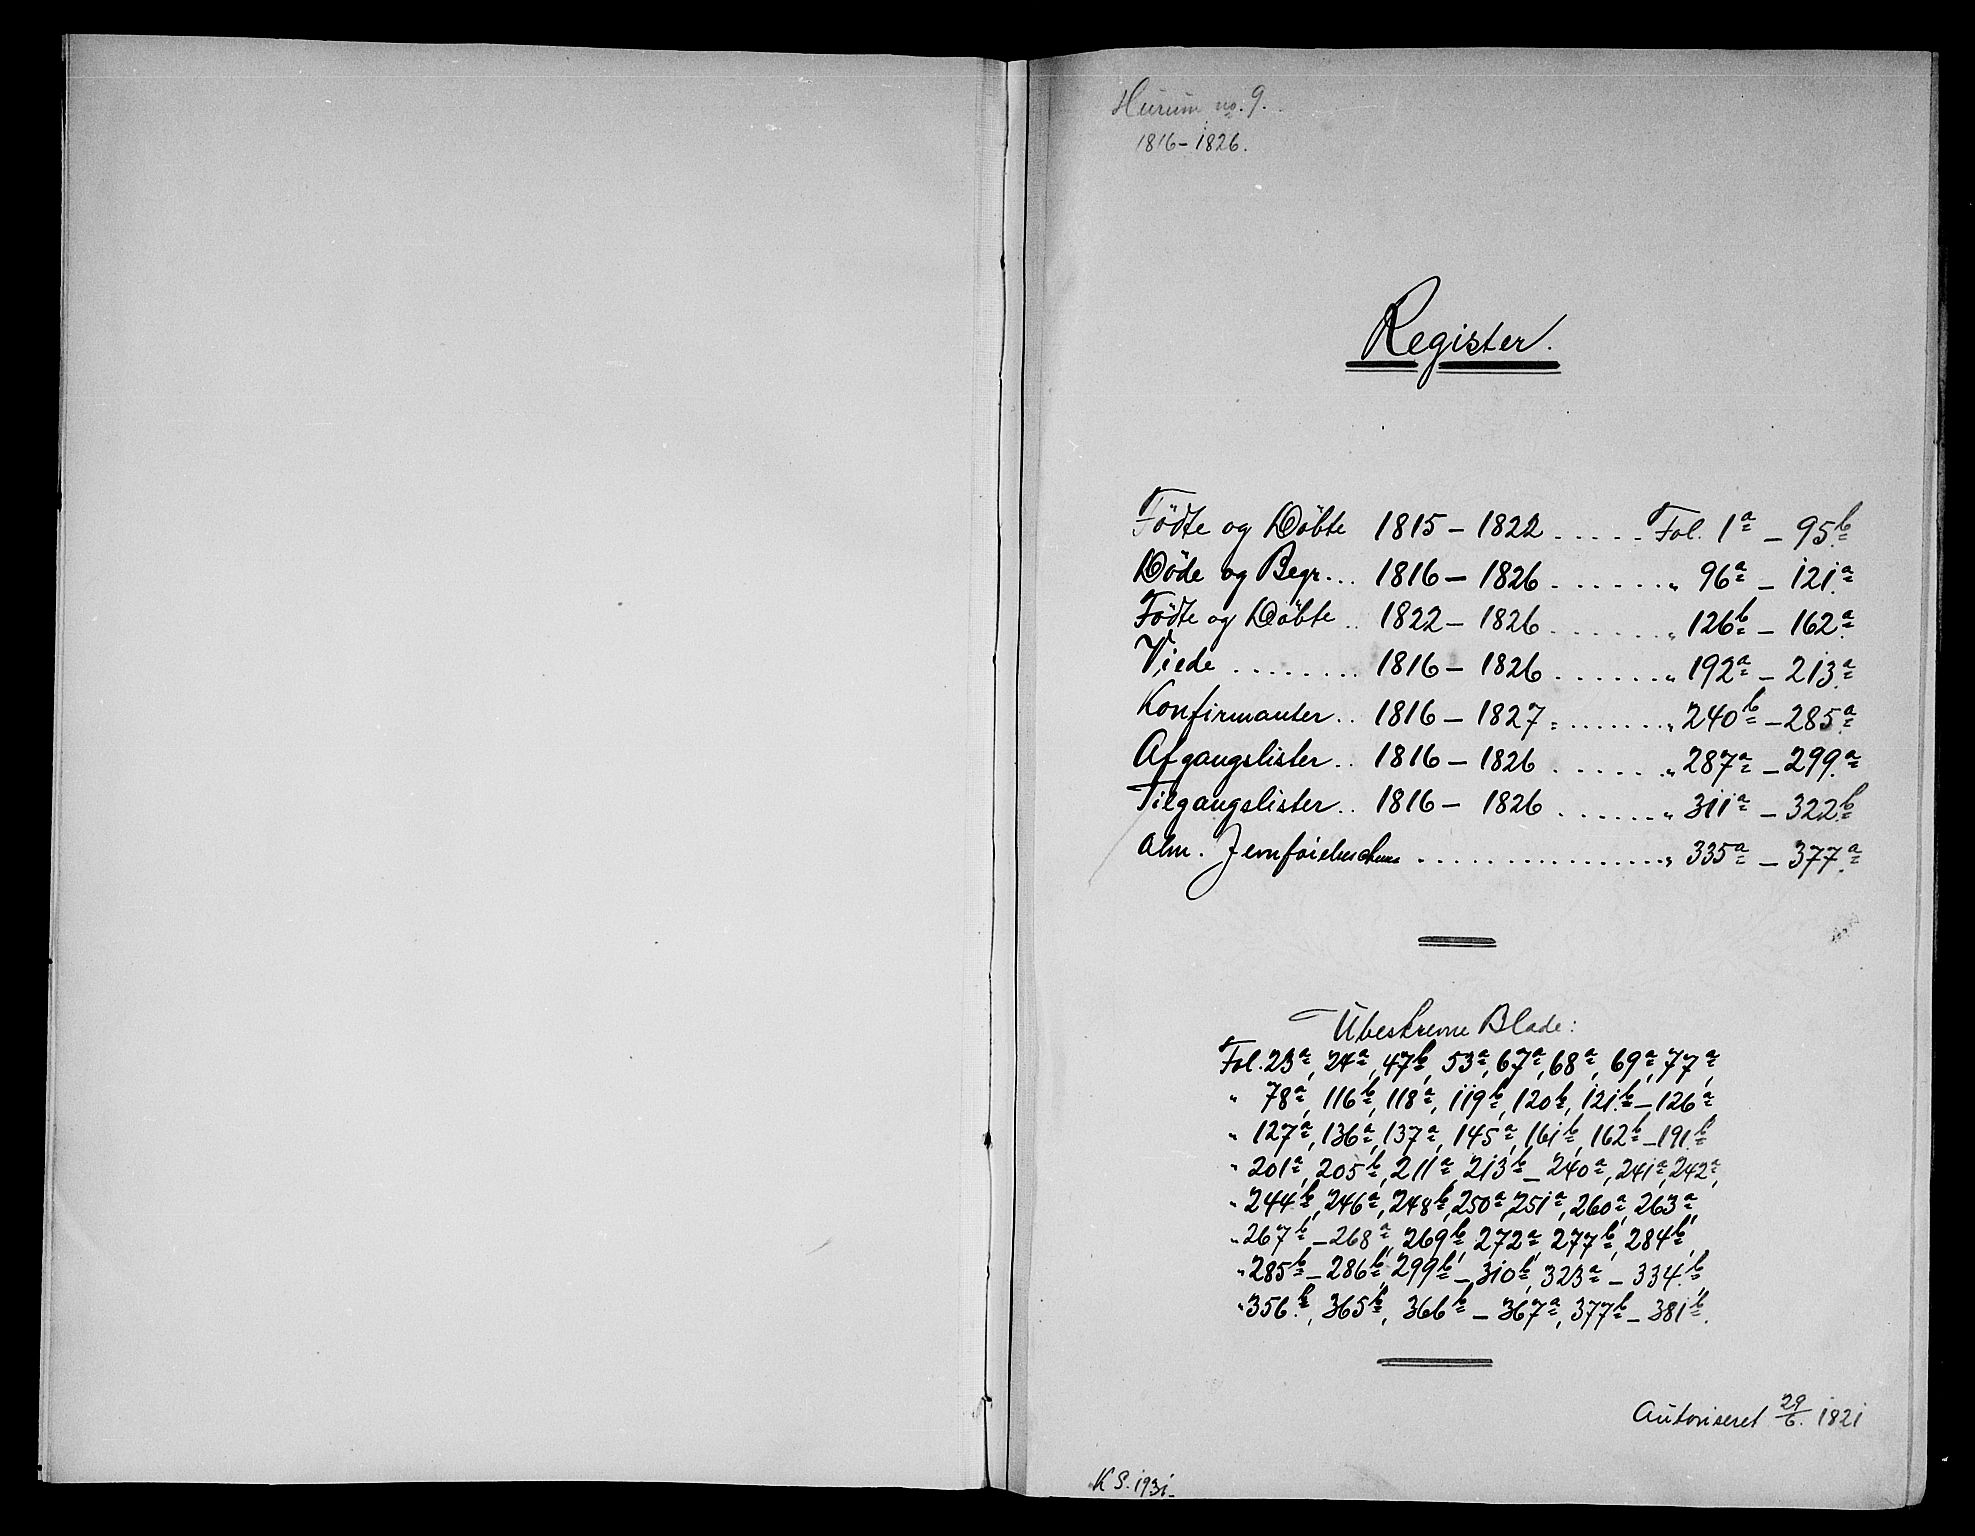 Hurum no. 9.
1816-1826.
Register.
Födte og Döbte 1815-1822 ..... Fol. 1a - 95b
Döde og Begr... 1816-1826 ...... " 96a - 121a
Födte og Döbte .. 1822-1826 ...... " 126b - 162a
Viede ........ 1816-1826 ...... " 192a - 213a
Konfirmanter .. 1816-1827 ....... " 240b - 285a
Afgangslister .. 1816-1826 ...... " 287a - 299a
Tilgangslister .. 1816-1826 ...... " 311a - 322b
Alm. ................ " 335a - 377a
Ubeskrevne Blade:
Fol. 23a, 24a, 47b, 53a, 67a, 68a, 69a, 77a,
" 78a, 116b, 118a, 119b, 120b, 121b-126a
" 127a, 136a, 137a, 145a, 161b, 162b-191b
" 201a, 205b, 211a, 213b-240a, 241a, 242a,
" 244b, 246a, 248b, 250a, 251a, 260a, 263a
" 267b-268a, 269b, 272a, 277b, 284b,
" 285b-286b, 299b-310b, 323a-334b
" 356b, 365b, 366b-367a, 377b-381b.
Autoriseret 29/6. 1821
K S. 1931.